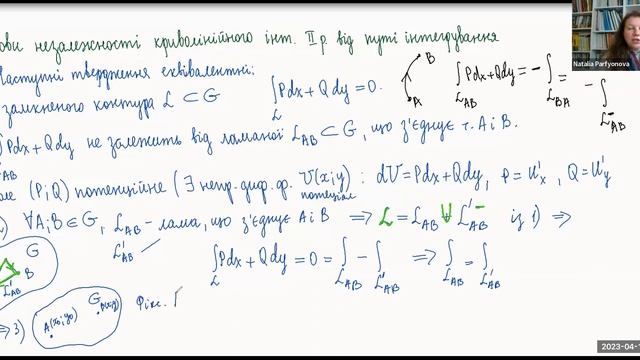 ови незалежності криволінійного інт. ІІ р від путі інтегрування
Наступні твердження еквівалентні:
замкненого контура L ⊂ G ∫_L Pdx + Qdy = 0.
B
A
∫_{L_{AB}} Pdx + Qdy = - ∫_{L_{BA}} = - ∫_{L_{AB}^-}
∫_{L_{AB}} Pdx + Qdy не залежить від ламаної L_{AB} ⊂ G, що з'єднує т. A і B.
ле (P; Q) потенційне (∃ непр. диф. ф. U(x; y) : dU = Pdx + Qdy, P = U'_x , Q = U'_y
потенціал
) ∀A; B ∈ G, L_{AB} - лама, що з'єднує A і B ⇒ L = L_{AB} ∪ L'_{AB}^- із 1) ⇒
L'_{AB}
G
B
L'_{AB}
∫_L Pdx + Qdy = 0 = ∫_{L_{AB}} - ∫_{L'_{AB}} ⇒ ∫_{L_{AB}} = ∫_{L'_{AB}}
⇒ 3) A(x_0; y_0) G B(x; y) Фікс.
Natalia Parfyonova
2023-04-1